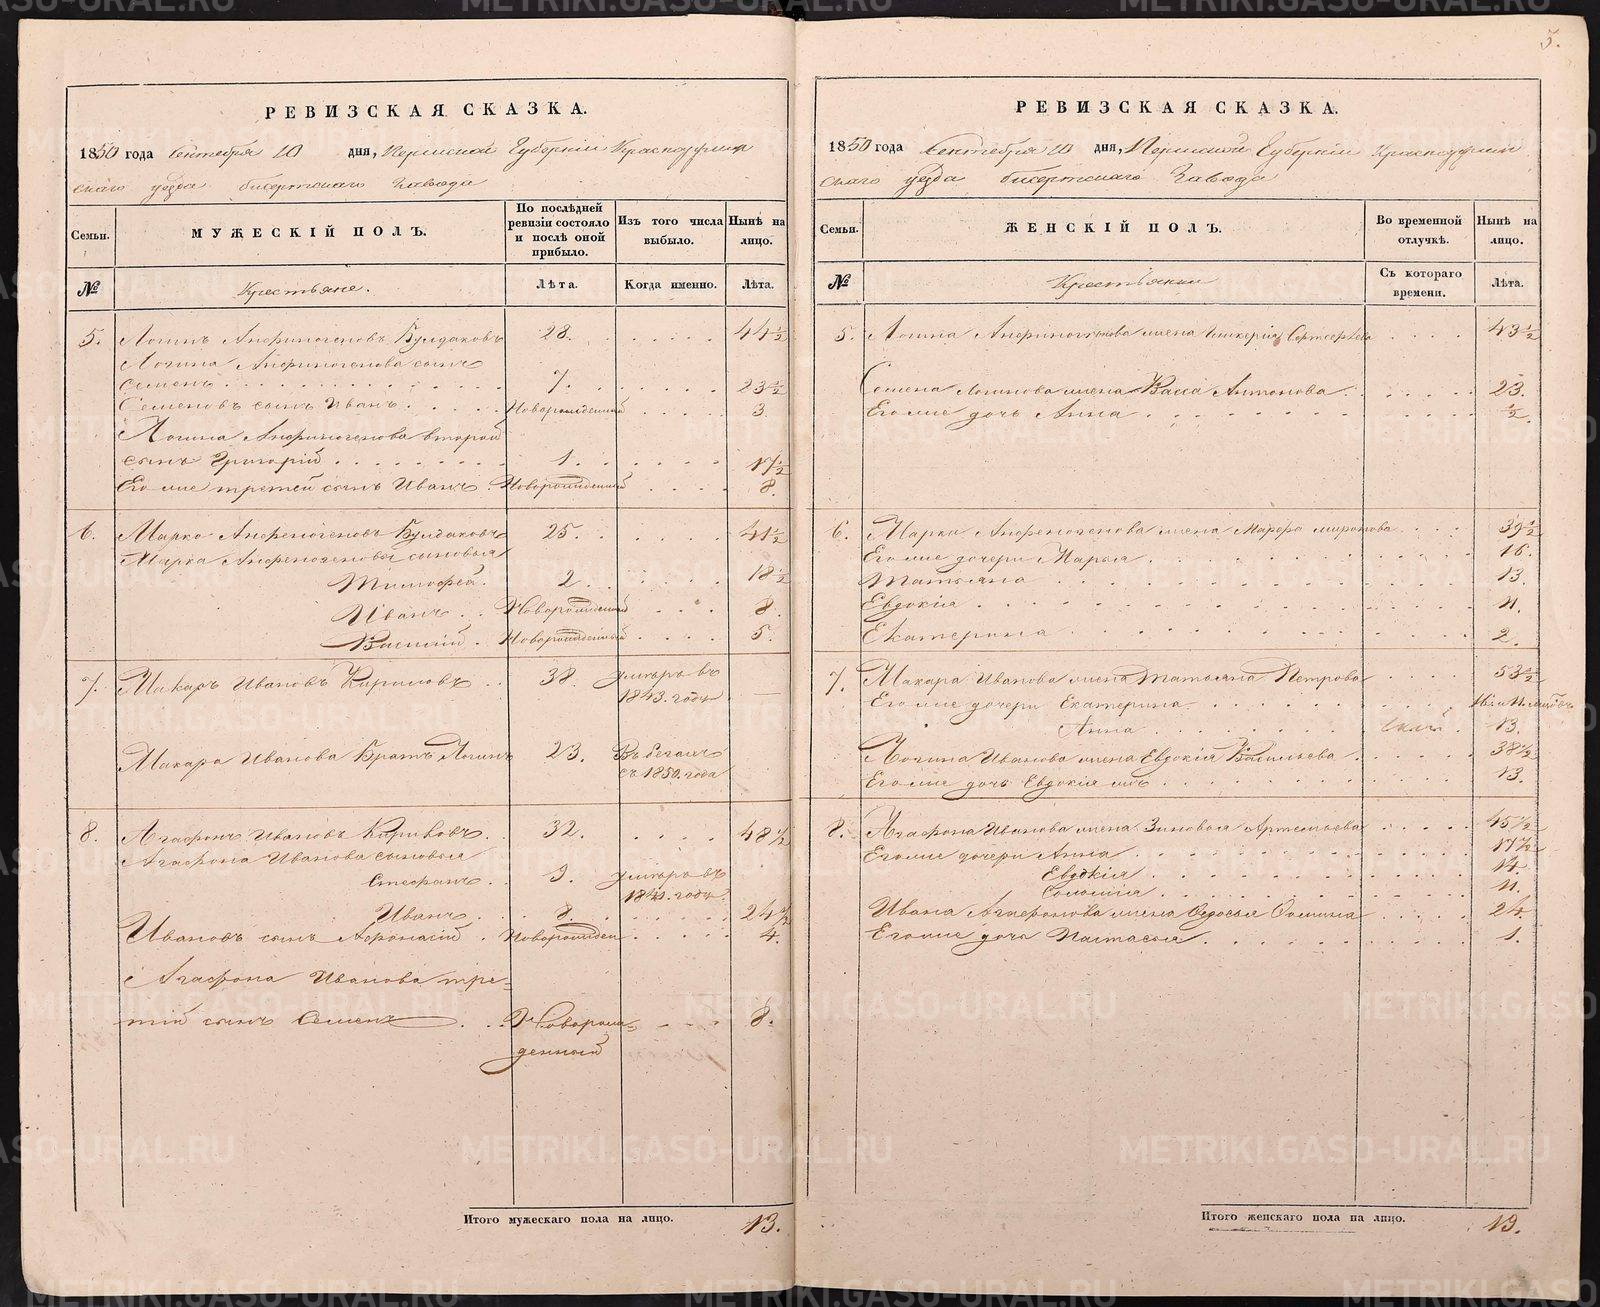 5.
РЕВИЗСКАЯ СКАЗКА.
1850 года Сентября 10 дня, Пермской Губерніи Красноуфим
скаго уезда бисертскаго Завода
Семьи.
МУЖЕСКІЙ ПОЛЪ.
По послѣдней ревизіи состояло и послѣ оной прибыло.
Изъ того числа выбыло.
Нынѣ на лицо.
№
Крестьяне.
Лѣта.
Когда именно.
Лѣта.
5. Логинъ Анфиногеновъ Булдаковъ 28. 44½
Логина Анфиногенова сынъ
Семенъ 7. 23½
Семеновъ сынъ Иванъ Новорожденный 3
Логина Анфиногенова второй
сынъ Григорій 1. 17½
Его же третей сынъ Иванъ Новорожденный 8.
6. Марко Анфеногеновъ Булдаковъ 25. 41½
Марка Анфеногеновы сыновья
Тимофей 2. 18½
Иванъ Новорожденный 8.
Василий Новорожденный 5.
7. Макаръ Ивановъ 38. умеръ въ
1843. годе —
Макара Иванова Братъ Логинъ 23. Въ бегахъ
съ 1850. года
8. Агафонъ Ивановъ 32. 48½
Агафона Иванова сыновья
Стефанъ 9. умеръ въ
1841. годе
Иванъ 8. 24½
Ивановъ сынъ Афонасій Новорожден 4.
Агафона Иванова тре-
тій сынъ Семенъ Новорож- 8.
денный
Итого мужескаго пола на лицо. 13.
РЕВИЗСКАЯ СКАЗКА.
1850 года Сентября 10 дня, Пермской Губерніи Красноуфим
скаго уезда бисертскаго Завода
Семьи.
ЖЕНСКІЙ ПОЛЪ.
Во временной отлучкѣ.
Нынѣ на лицо.
№
Крестьянки
Съ котораго времени.
Лѣта.
5. Логина Анфиногенова жена Гликерія 43½
Семена Логинова жена Васса Антонова 23.
Его же дочь Анна ½.
6. Марка Анфеногенова жена Марфа миронова 39½
Его же дочери Марья 16.
Татьяна 13.
Евдокія 4.
Екатерина 2.
7. Макара Иванова жена Татьяна Петрова 53½
Его же дочери Екатерина
Анна 13.
Логина Иванова жена Евдокія Васильева 38½
Его же дочь Евдокія 13.
8. Агафона Иванова жена Зиновья Артемьева 45½
Его же дочери Анна 17½
Евдокія 14.
Соломія 4.
Ивана Агафонова жена Федосья Фомина 24.
Его же дочь Настасья 1.
Итого женскаго пола на лицо. 19.
METRIKI.GASO-URAL.RU